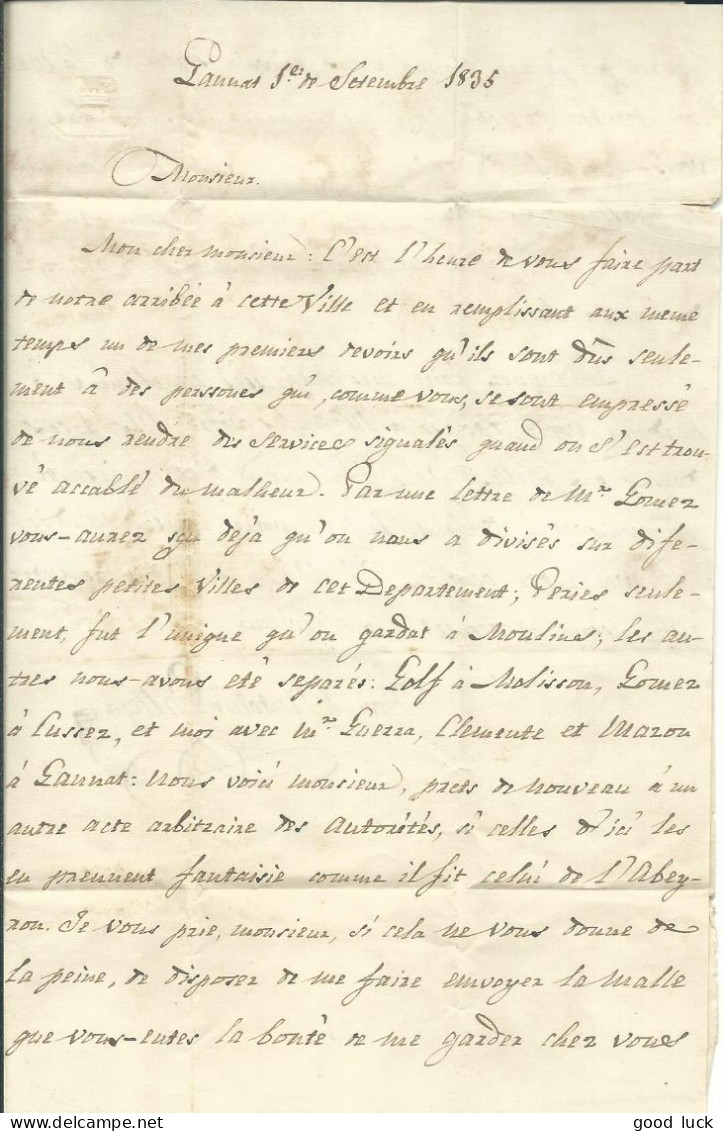 Gannat 1er de Setembre 1835
Monsieur.
Mon cher monsieur: C'est l'heure de vous faire part
de notre arribée à cette Ville et en remplissant aux meme
temps un de mes premiers devoirs qu'ils sont dûs seule-
ment â des perssones qui, comme vous, se sont empressé
de nous rendre des services signalés quand on s'est trou-
vé accablé du malheur. Par une lettre de Mr Gomez
vous-aurez sçu dejà qu'on nous a divisés sur dife-
rentes petites Villes de cet Departement; Peries seule-
ment, fut l'unique qu'on gardat à Moulins; les au-
tres nous-avons eté separés: Golf à Molisson, Gomez
à Cusset, et moi avec mr Guerra, Clemente et Mazon
â Gannat: Nous voici monsieur, prets de nouveau à un
autre acte arbitraire des Autorités, si celles d'ici les
en prennent fantaisie comme il fit celui de l'Abey-
ron. Je vous prie, monsieur, si cela ne vous donne de
la peine, de disposer de me faire envoyer la malle
que vous-eutes la bonté de me garder chez vous
delcampe.net
good luck